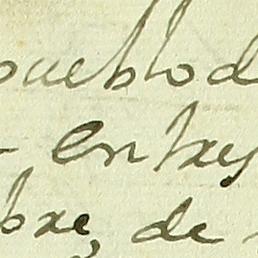 pueblo d
- en trey
bre, de